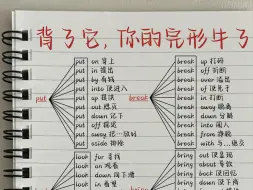 背了它，你的完形牛了
put
put on 穿上
put in 提出
put by 存钱
put into 使进入
put up 提议
put out 熄灭
put down 记下
put off 推迟
put away 把…放好
put aside 挪掉
break
break up 打碎
break off 折断
break over 溢出
break of 使免于
break in 打断
break away 脱离
break down 分解
break into 闯入
break from 挣脱
break with 与…绝交
look for 寻找
look on 观看
look down 俯下进
look in 看望
bring out 使显现
bring about 使
bring back 使回忆
bring down 使下降